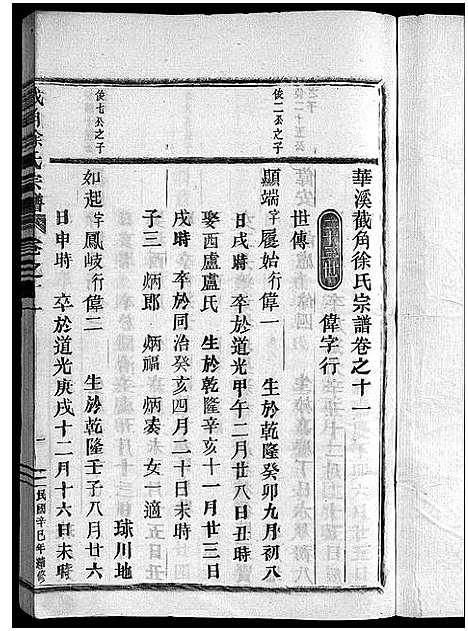 華溪截角徐氏宗譜卷之十一
世傳
偉字行
俟二公之子
顯端字履始行偉一 生於乾隆癸卯九月初八
日戌時 卒於道光甲午二月廿八日丑時
娶西盧盧氏 生於乾隆辛亥十一月廿三日
戌時 卒於同治癸亥四月二十日未時
子三 炳郎 炳福 炳 女一適 球川地
俟七公之子
如起字鳳岐行偉二 生於乾隆壬子八月廿六
日申時 卒於道光庚戌十二月十六日未時
截角徐氏宗譜 卷之十一
一 民國辛巳年續修